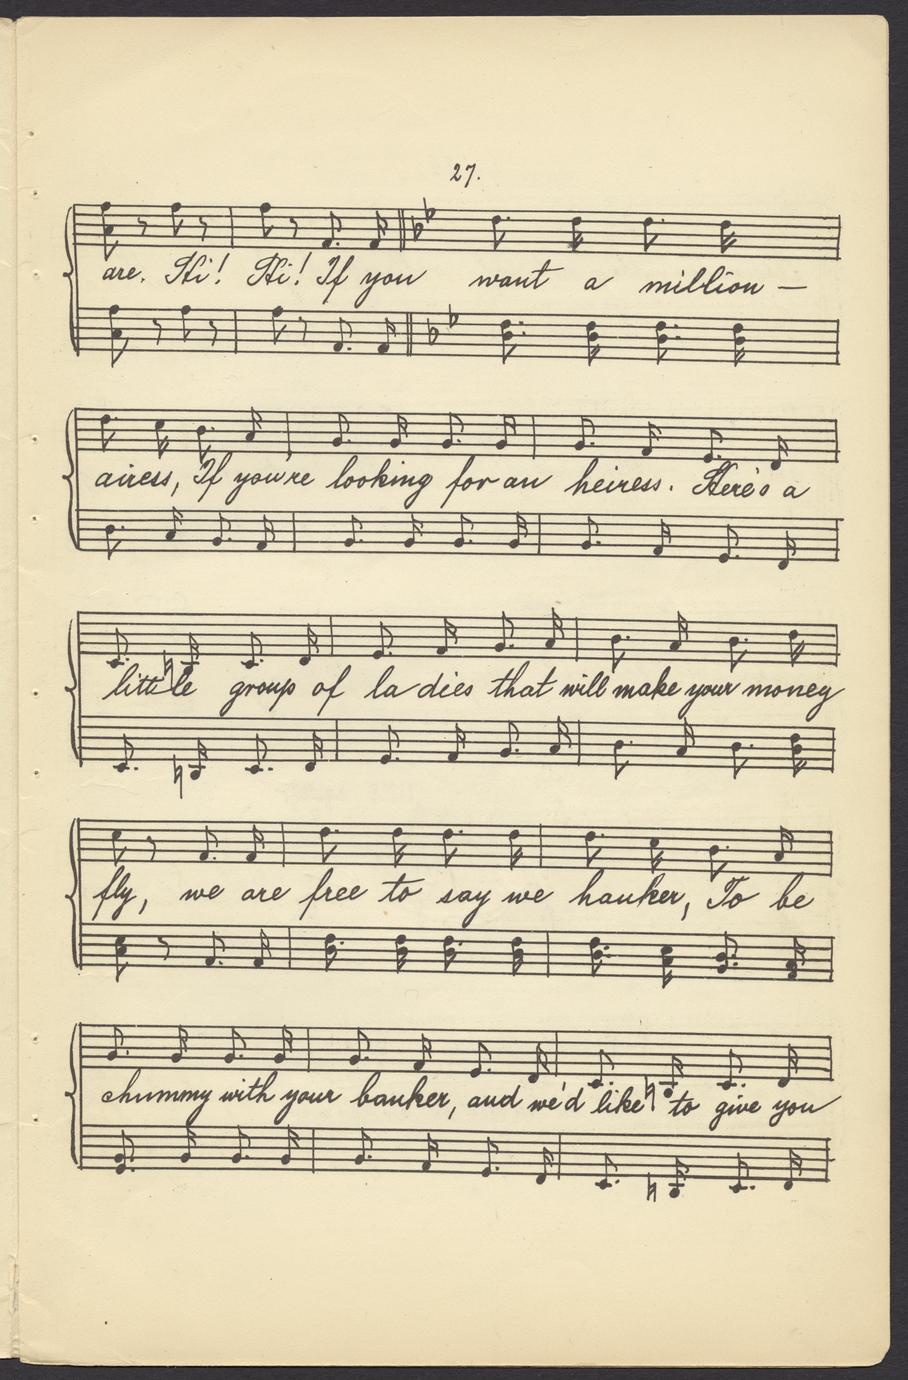 27.
are. Hi! Hi! If you want a million —
airess, If you're looking for an heiress. Here's a
little group of ladies that will make your money
fly, we are free to say we hanker, To be
chummy with your banker, and we'd like to give you